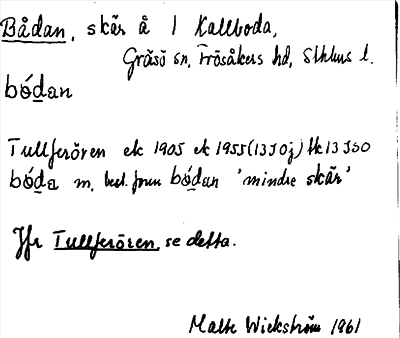 Bådan, skär å 1 Kallboda,
Gräsö sn, Frösåkers hd, Sthlms l.
bódan
Tullferören ek 1905 ek 1955 (13J0j) tk 13J50
bóda m, best. form bódan 'mindre skär'
Jfr Tullferören, se detta.
Malte Wickström 1961